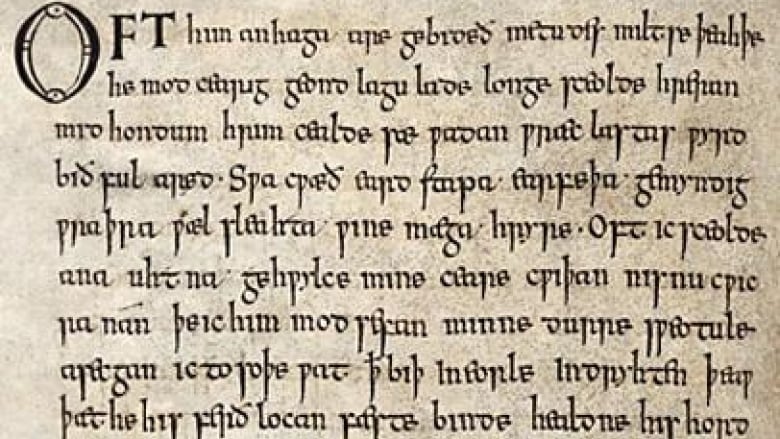 OFT him anhaga are gebideð metudes miltse þeahþe
he mod cearig geond lagu lade longe sceolde hreran
mid hondum hrim cealde sæ ƿadan ƿræc lastas ƿyrd
bið ful aræd · Sƿa cƿæð eard stapa earfeþa gemyndig
ƿraþra ƿæl sleahta ƿine mæga hryre · Oft ic sceolde
ana uhtna gehƿylce mine ceare cƿiþan nis nu cƿic
ra nan þe ic him mod sefan minne durre sƿeotule
asecgan ic to soþe ƿat ꝥ biþ in eorle indryhten þeaƿ
þæt he his ferð locan fæste binde healdne his hord